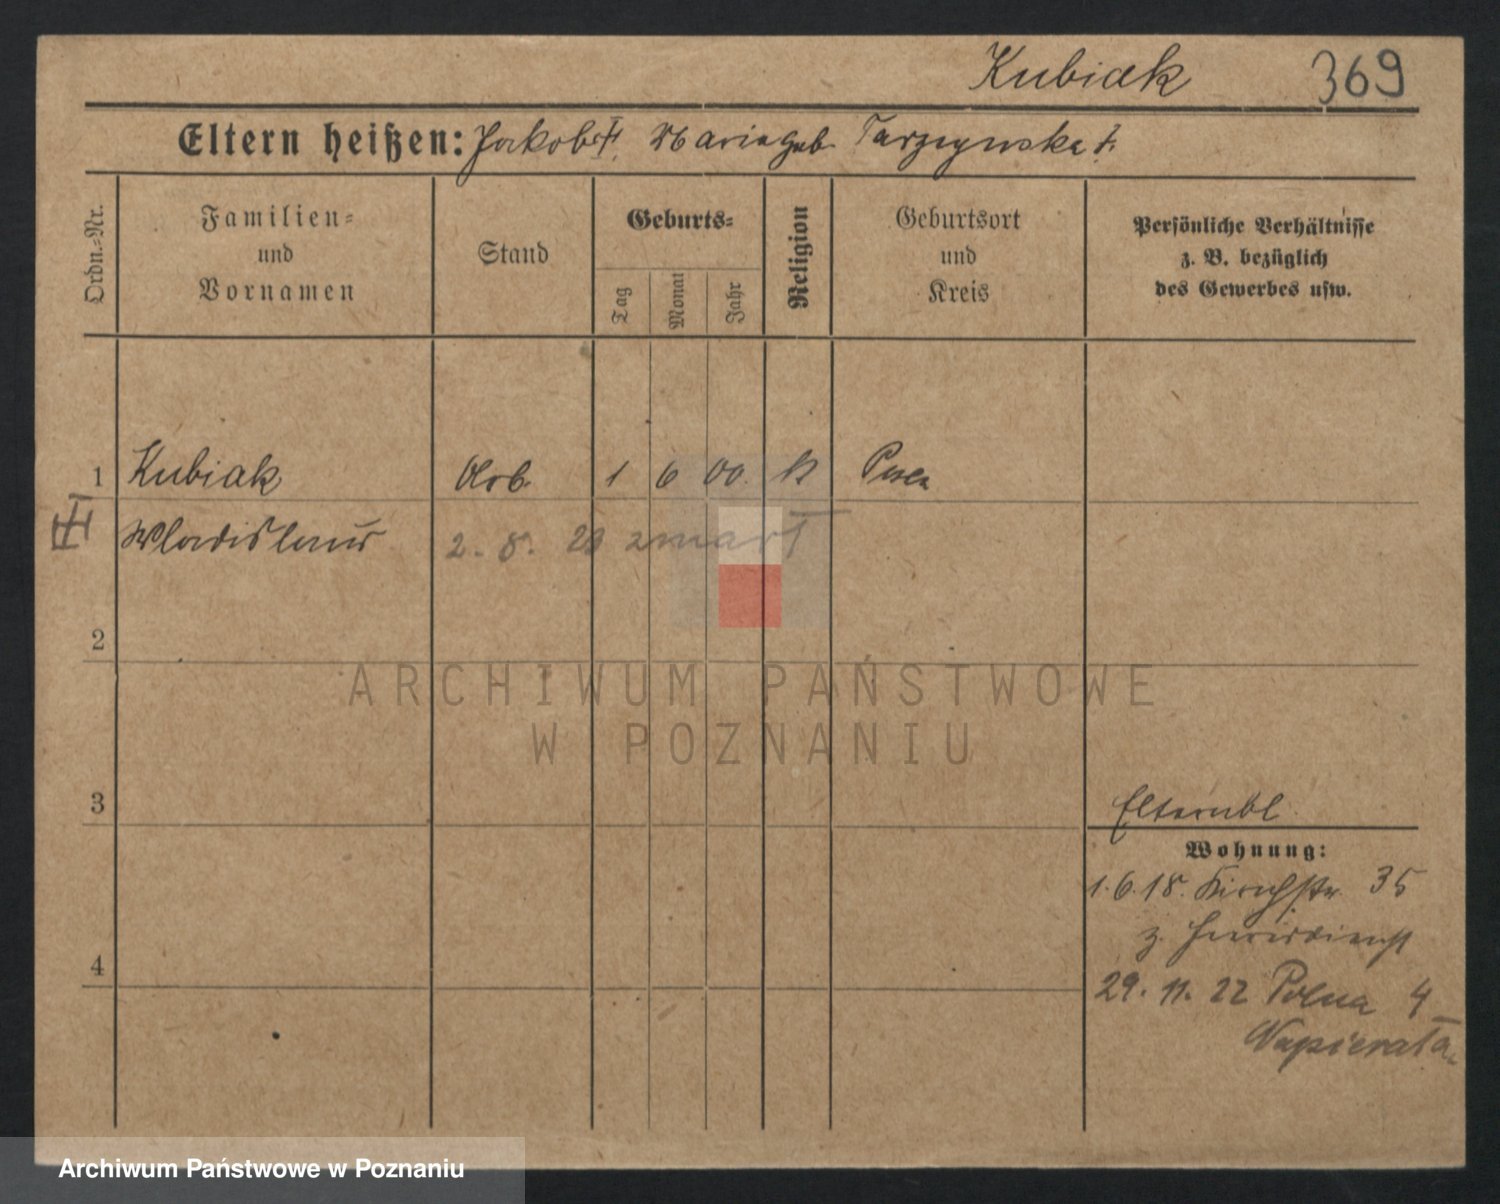 Kubiak 369
Eltern heißen: Jakob † Maria geb. Tarzynska †.
Ordn.-Nr.
Familien-
und
Vornamen
Stand
Geburts-
Tag
Monat
Jahr
Religion
Geburtsort
und
Kreis
Persönliche Verhältnisse
z. B. bezüglich
des Gewerbes usw.
1 Kubiak Arb. 1 6 00. k
Wladislaus 2. 8. 23 zmarł
2
ARCHIWUM PAŃSTWOWE
W POZNANIU
3
Elternbl.
Wohnung:
1.6.18. Kirchstr. 35
z.
4
29. 11. 22 Polna 4
Napierała
Archiwum Państwowe w Poznaniu